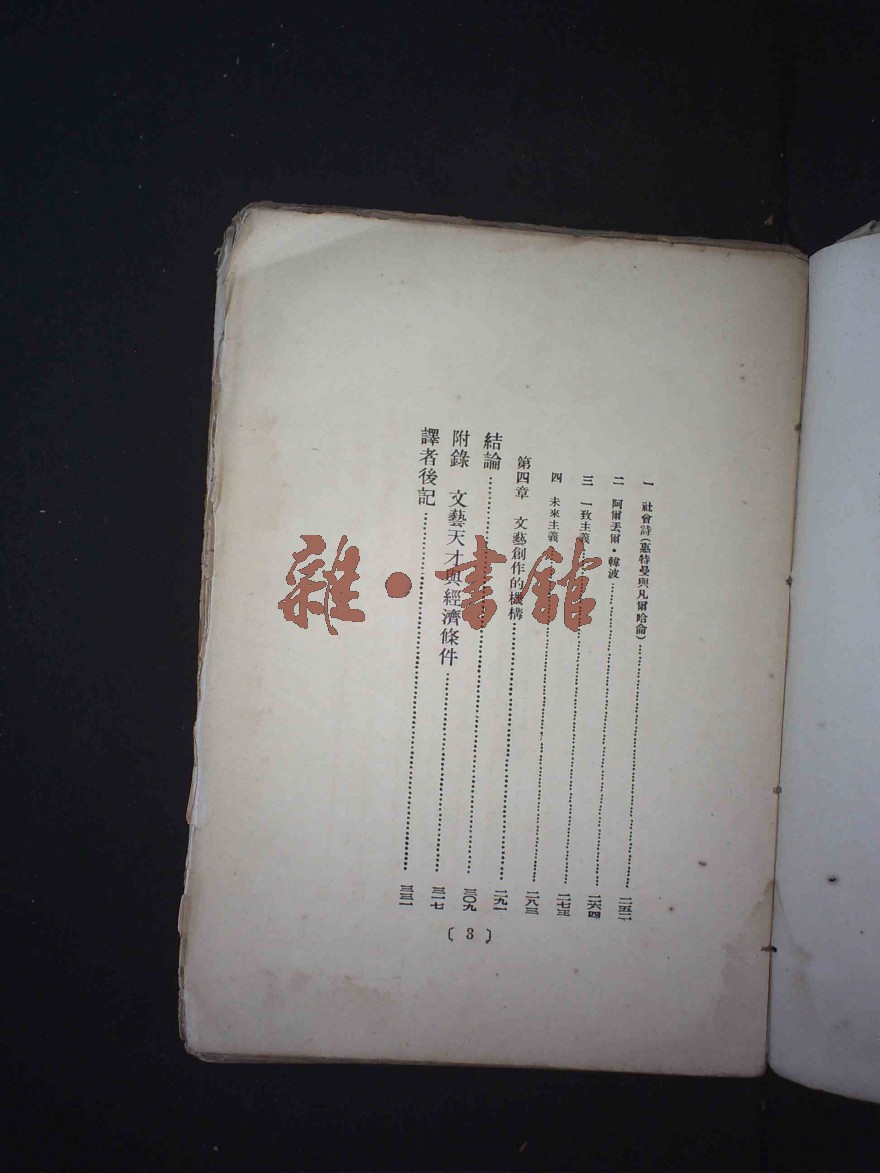 一　社會詩(惠特曼與凡爾哈侖)……二五二
二　阿爾丟爾・韓波……二六四
三　一致主義……二七五
四　未來主義……二八三
第四章　文藝創作的機構……二九一
結論……三〇九
附錄　文藝天才與經濟條件……三一七
譯者後記……三三一
〔3〕
雜・書館